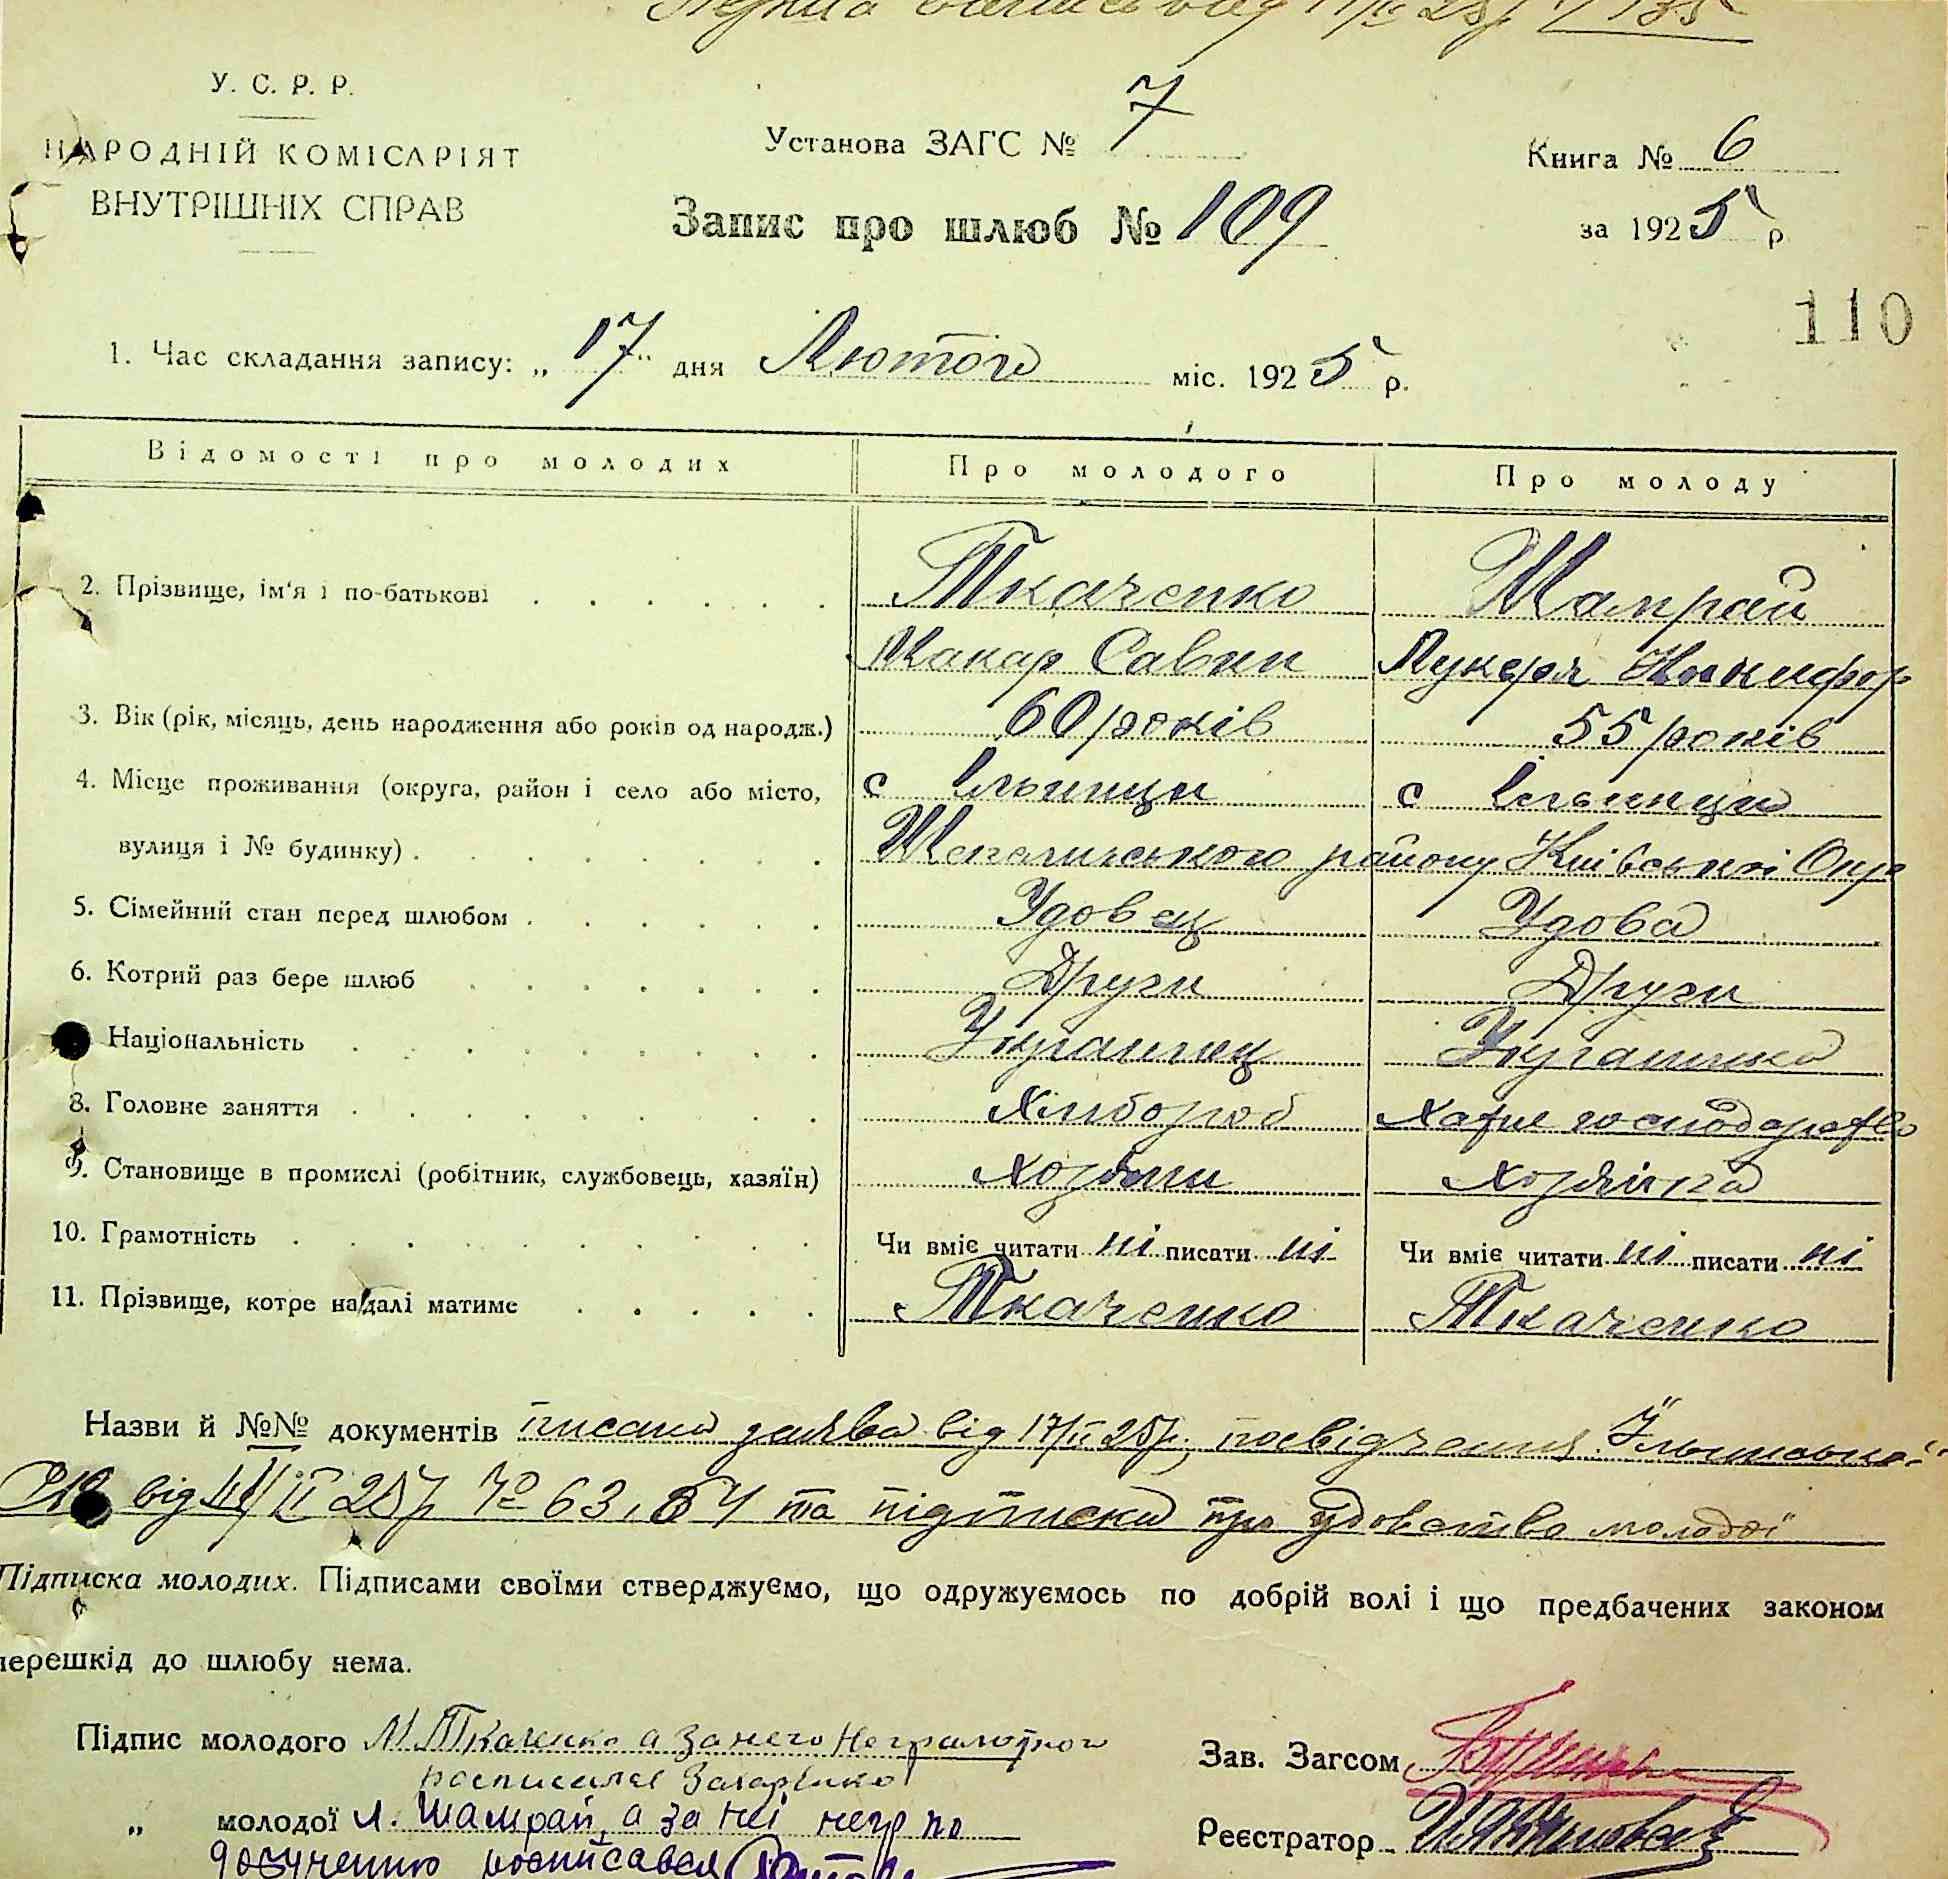 У. С. Р. Р.
НАРОДНІЙ КОМІСАРІЯТ
ВНУТРІШНІХ СПРАВ
Установа ЗАГС № 7
Книга № 6
Запис про шлюб № 109
за 1925 р
110
1. Час складання запису: „17" дня Лютого міс. 1925 р.
Відомості про молодих Про молодого Про молоду
2. Прізвище, ім'я і по-батькові Ткаченко Шамрай
Макар Савин Лукеря Никифор
3. Вік (рік, місяць, день народження або років од народж.) 60 років 55 років
4. Місце проживання (округа, район і село або місто, с Ільинци с Ільинци
вулиця і № будинку) Шепелинського району Київської Окр
5. Сімейний стан перед шлюбом Удовец Удова
6. Котрий раз бере шлюб Други Други
Національність Украинец Украинка
8. Головне заняття Хлибороб Хатне господарство
9. Становище в промислі (робітник, службовець, хазяїн) Хозяин Хозяйка
10. Грамотність Чи вміє читати ні писати ні Чи вміє читати ні писати ні
11. Прізвище, котре надалі матиме Ткаченко Ткаченко
Назви й №№ документів писана заява від 17/II 25р., посвідчення
від II 25р № 63, 64 та підписка про удовство молодої
Підписка молодих. Підписами своїми стверджуємо, що одружуємось по добрій волі і що предбачених законом
перешкід до шлюбу нема.
Підпис молодого М. Ткаченко а за него неграмотного
росписался Захаренко
Зав. Загсом
„ молодої Л. Шамрай, а за неї негр по
Реєстратор
доручению росписався